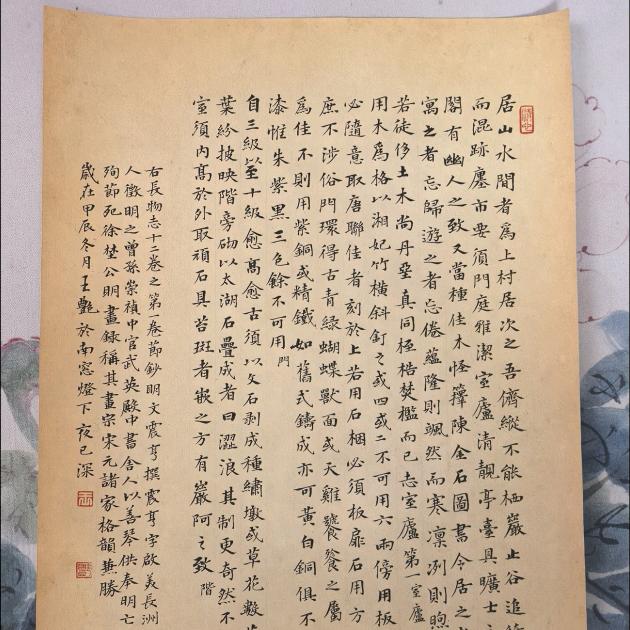 居山水間者為上村居次之吾儕縱不能栖巖止谷追
而混跡廛市要須門庭雅潔室廬清靚亭臺具曠士
閣有幽人之致又當種佳木怪籜陳金石圖書令居之
寓之者忘歸遊之者忘倦蘊隆則颯然而寒凜冽則煦
若徒侈土木尚丹堊真同桎梏樊檻而已志室廬第一室廬
用木為格以湘妃竹橫斜釘之或四或二不可用六兩傍用板
必隨意取唐聯佳者刻於上若用石梱必須板扉石用方
庶不涉俗門環得古青綠蝴蝶獸面或天雞饕餮之屬
為佳不則用紫銅或精鐵如舊式鑄成亦可黃白銅俱不
漆惟朱紫黑三色餘不可用門
自三級以至十級愈高愈古須以文石剥成種繡墩或草花數
葉紛披映階旁砌以太湖石疊成者曰澀浪其制更奇然不
室須內高於外取頑石具苔斑者嵌之方有巖阿之致階
右長物志十二卷之第一卷節鈔明文震亨撰震亨字啟美長洲
人徵明之曾孫崇禎中官武英殿中書舍人以善琴供奉明亡
殉節死徐埜公明畫録稱其畫宗宋元諸家格韻兼勝
歲在甲辰冬月王艷於南窓燈下夜已深